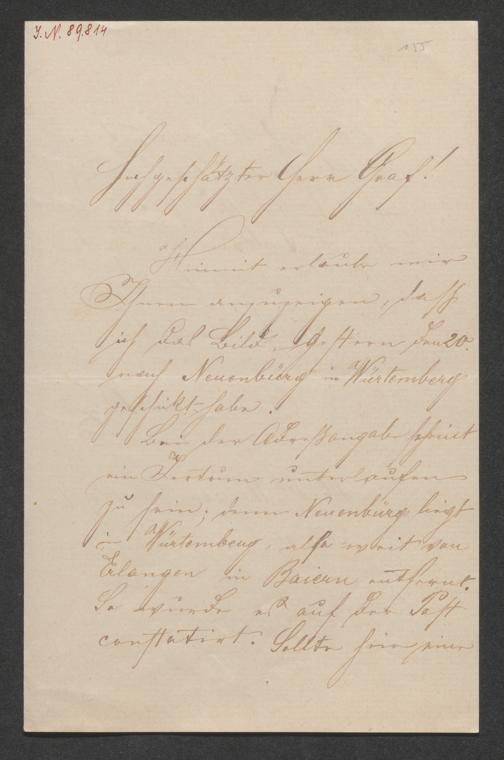 I. N. 89.814
155
Hochgeschätzter Herr Graf!
Hiemit erlaube mir
Ihnen anzuzeigen, dass
ich das Bild gestern den 20.
nach Neuenbürg in Würtemberg
geschickt habe.
Bei der Adreßangabe scheint
ein Irrtum unterlaufen
zu sein; denn Neuenbürg liegt
in Würtemberg, also weit von
Erlangen in Baiern entfernt.
So wurde es auf der Post
constatirt. Sollte hier eine